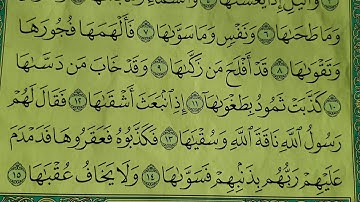 وَٱلَّيْلِ إِذَا يَغْشَىٰهَا ۝٤ وَٱلسَّمَآءِ
وَمَا طَحَىٰهَا ۝٦ وَنَفْسٍ وَمَا سَوَّىٰهَا ۝٧ فَأَلْهَمَهَا فُجُورَهَا
وَتَقْوَىٰهَا ۝٨ قَدْ أَفْلَحَ مَن زَكَّىٰهَا ۝٩ وَقَدْ خَابَ مَن دَسَّىٰهَا
۝١٠ كَذَّبَتْ ثَمُودُ بِطَغْوَىٰهَآ ۝١١ إِذِ ٱنۢبَعَثَ أَشْقَىٰهَا ۝١٢ فَقَالَ لَهُمْ
رَسُولُ ٱللَّهِ نَاقَةَ ٱللَّهِ وَسُقْيَٰهَا ۝١٣ فَكَذَّبُوهُ فَعَقَرُوهَا فَدَمْدَمَ
عَلَيْهِمْ رَبُّهُم بِذَنۢبِهِمْ فَسَوَّىٰهَا ۝١٤ وَلَا يَخَافُ عُقْبَٰهَا ۝١٥